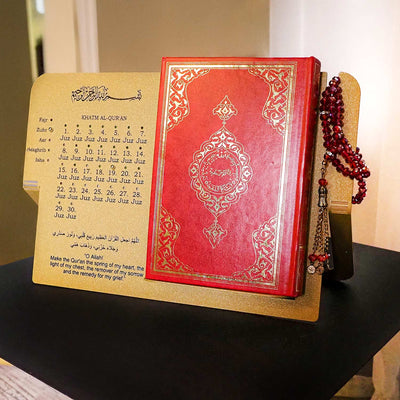 بسم الله الرحمن الرحيم
KHATM AL-QUR'AN
Fajr
Zuhr
Asr
Maghrib
Isha
1. 2. 3. 4. 5. 6. 7.
Juz Juz Juz Juz Juz Juz Juz
8. 9. 10. 11. 12. 13. 14.
Juz Juz Juz Juz Juz Juz Juz
15. 16. 17. 18. 19. 20. 21.
Juz Juz Juz Juz Juz Juz Juz
22. 23. 24. 25. 26. 27. 28.
Juz Juz Juz Juz Juz Juz Juz
29. 30.
Juz Juz
اللهم اجعل القرآن العظيم ربيع قلبي، ونور صدري
وجلاء حزني، وذهاب همي
"O Allah!
Make the Qur'an the spring of my heart, the
light of my chest, the remover of my sorrow
and the remedy for my grief."